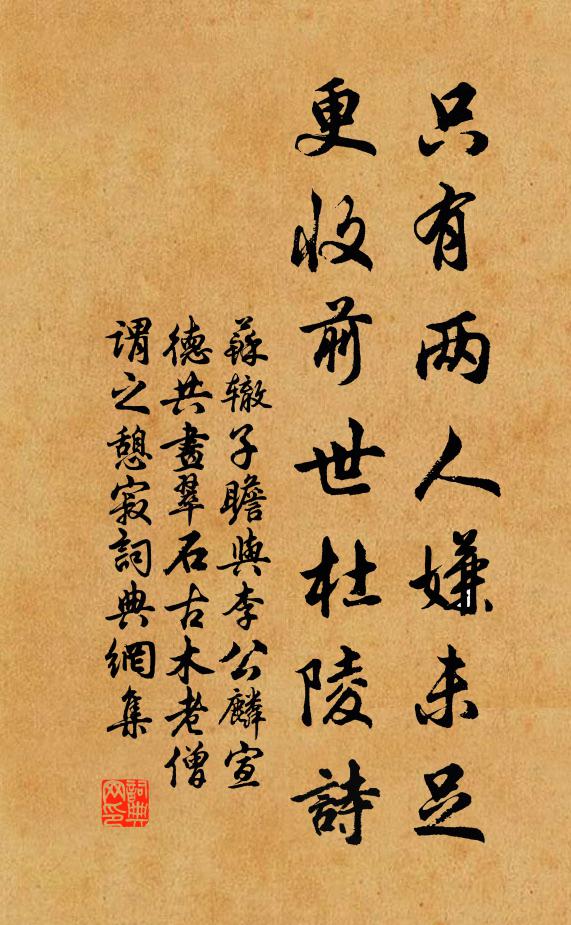 只有两人嫌未足
更收前世杜陵詩
蘇辙子瞻與李公麟宣
德共畫翠石古木老僧
謂之憩寂詞典網集
詞典
网印